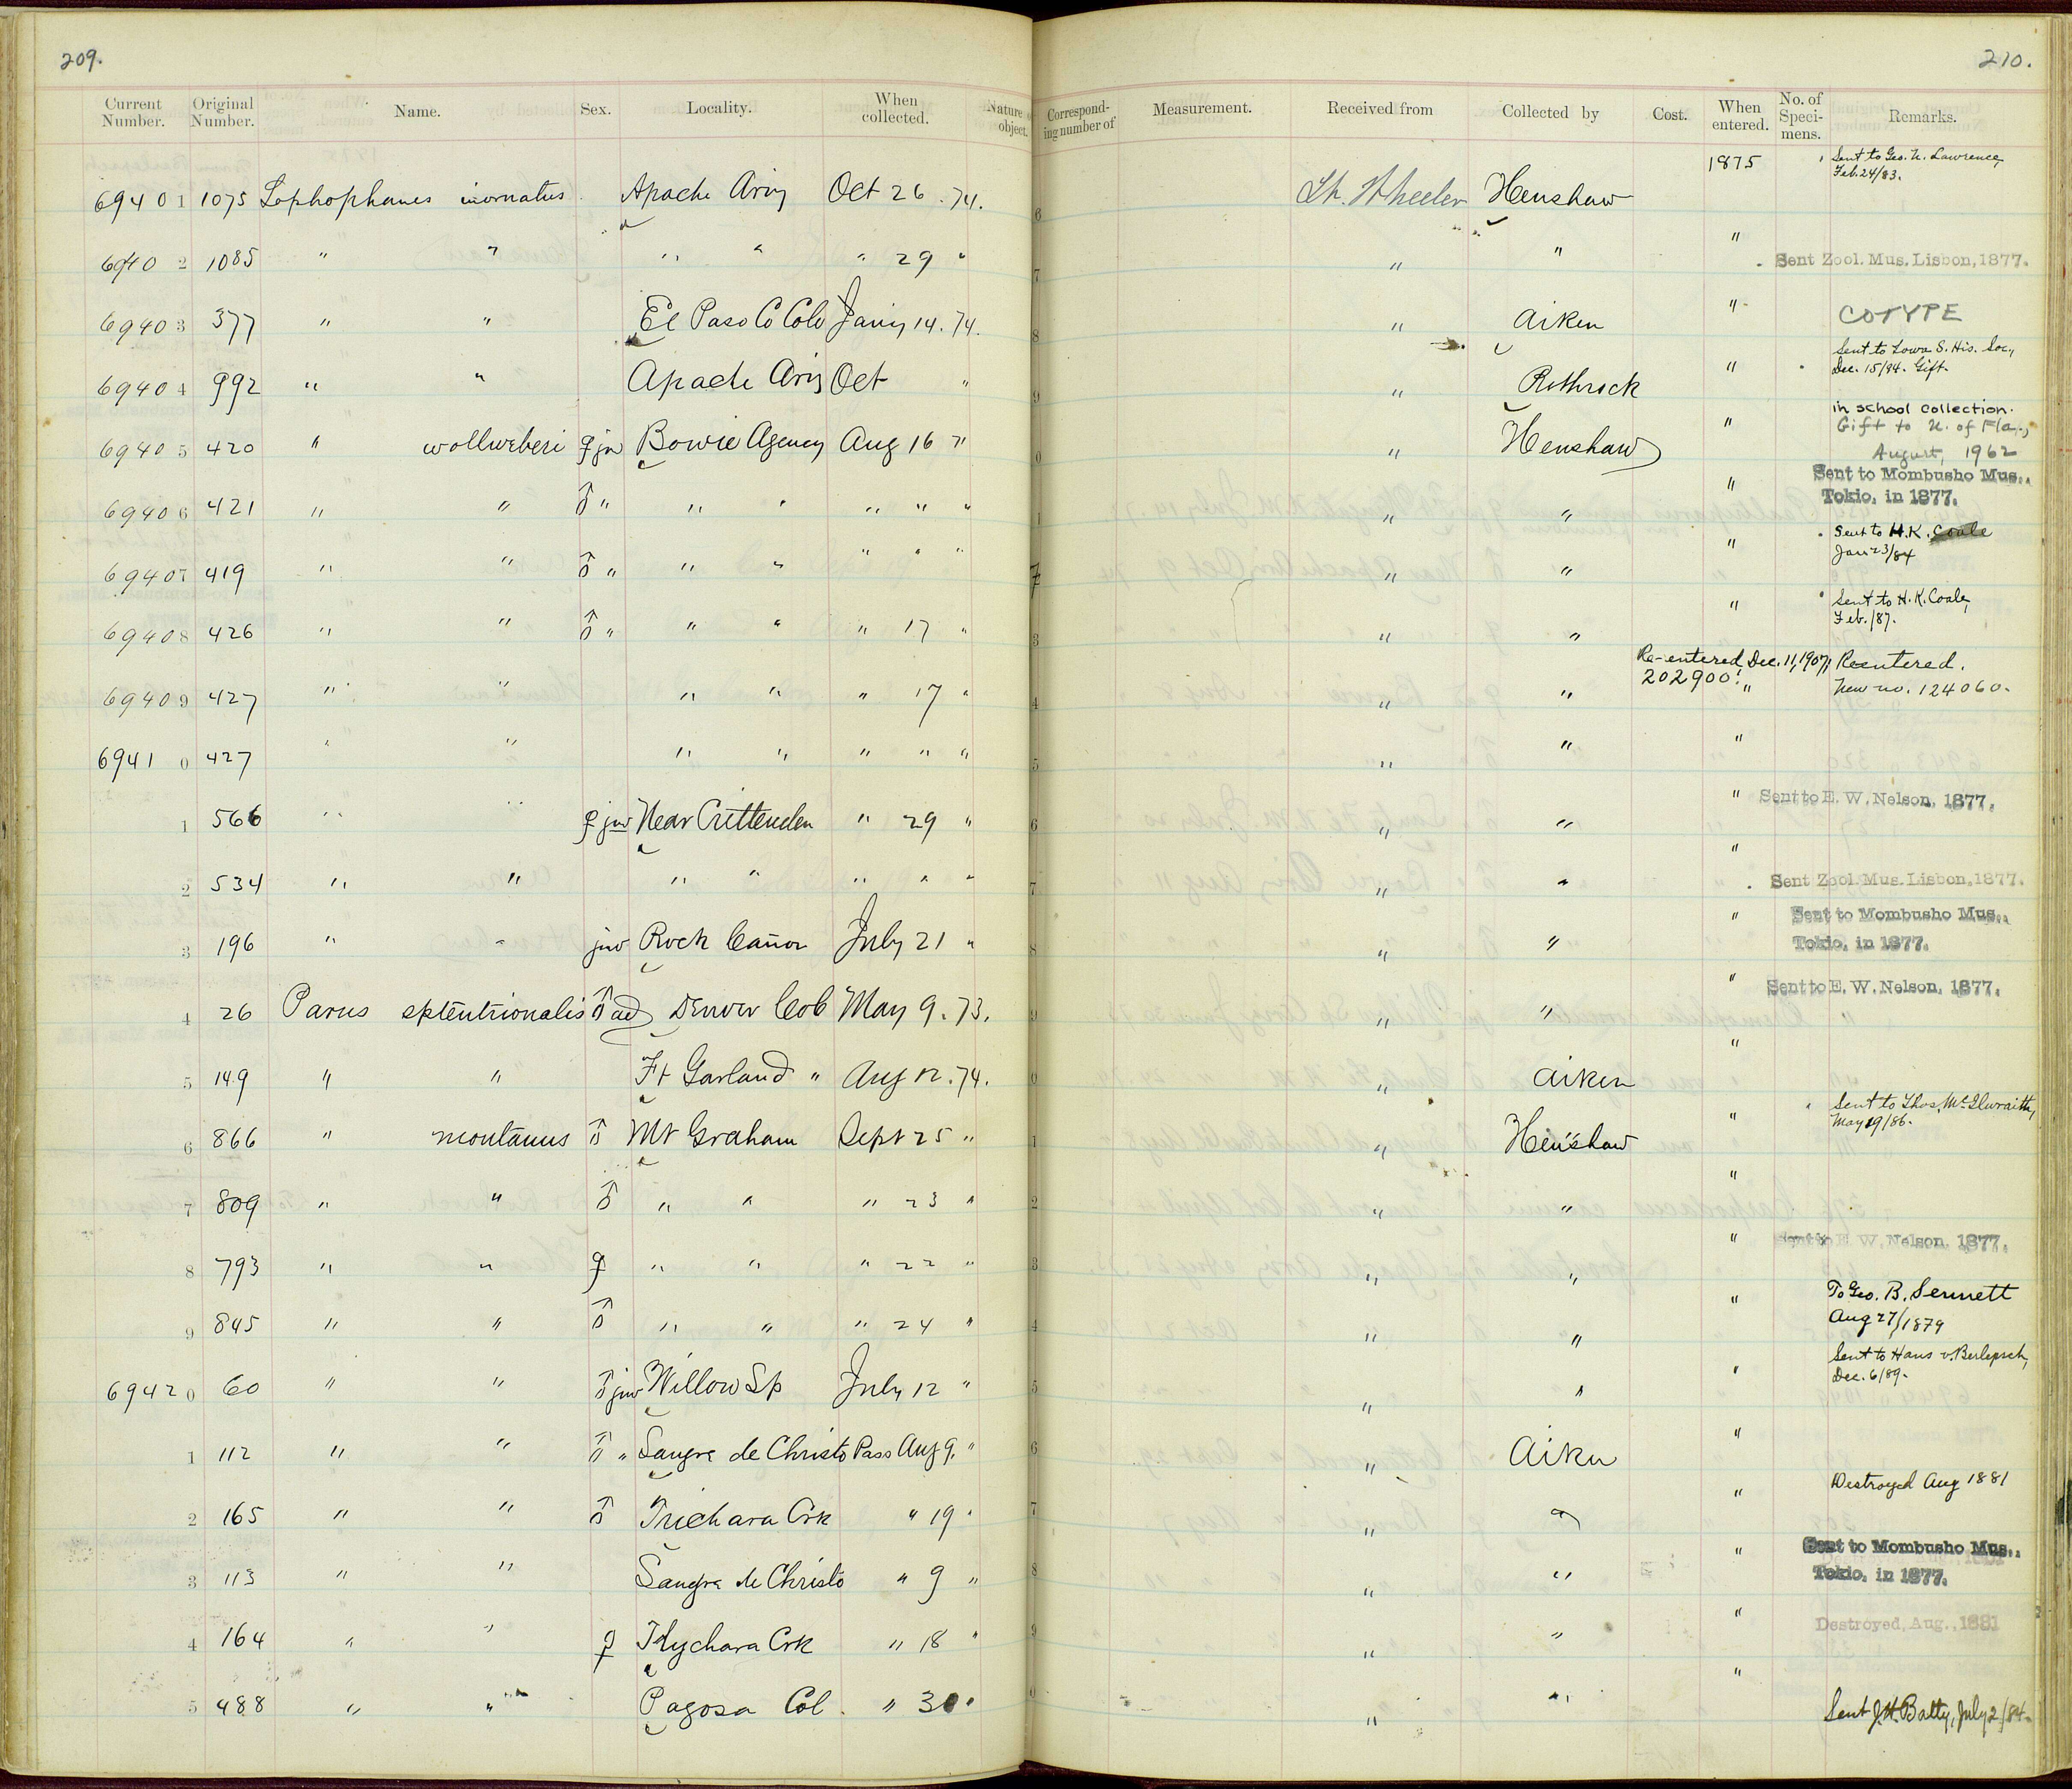 209.
210.
Current Number. Original Number. Name. Sex. Locality. When collected. Nature of object. Correspond-ing number of Measurement. Received from Collected by Cost. When entered. No. of Speci-mens. Remarks.
69401 1075 Lophophanes inornatus Apache Ariz Oct 26. 74. 6 Lt. Wheeler Henshaw 1875 Sent to Geo. N. Lawrence, Feb. 24/83.
69402 1085 " " " " " 29 " 7 " " " Sent Zool. Mus. Lisbon, 1877.
69403 377 " " El Paso Co Colo Jany 14. 74. 8 " Aiken " COTYPE
69404 992 " " Apache Ariz Oct " 9 " Rothrock " Sent to Iowa S. His. Soc., Dec. 15/94. Gift.
69405 420 " wollweberi ♀ juv Bowie Agency Aug 16 " 0 " Henshaw " in school collection. Gift to U. of Fla., August, 1962
69406 421 " " ♂ " " " " " " 1 " " " Sent to Mombusho Mus., Tokio, in 1877.
69407 419 " " ♂ " " " " " " " " " Sent to H. K. Coale Jan 23/84
69408 426 " " ♂ " " " " 17 " 3 " " " Sent to H. K. Coale, Feb./87.
69409 427 " " " " " 17 " 4 " " Re-entered Dec. 11, 1907, 202900! " Reentered. New no. 124060.
69410 427 " " " " " " " 5 " " "
1 566 " " ♀ juv Near Crittenden " 29 " 6 " " " Sent to E. W. Nelson, 1877.
2 534 " " " " " " " 7 " " " Sent Zool. Mus. Lisbon, 1877.
3 196 " " juv Rock Cañon July 21 " 8 " " " Sent to Mombusho Mus., Tokio, in 1877.
4 26 Parus septentrionalis ♂ ad Denver Colo May 9. 73. 9 " " " Sent to E. W. Nelson, 1877.
5 149 " " Ft Garland " Aug 12. 74. 0 " Aiken "
6 866 " montanus ♂ Mt Graham Sept 25 " 1 " Henshaw " Sent to Thos. McIlwraith, May 19/86.
7 809 " " ♂ " " " 23 " 2 " " "
8 793 " " ♀ " " " 22 " 3 " " " Sent to E. W. Nelson, 1877.
9 845 " " ♂ " " " 24 " 4 " " " To Geo. B. Sennett Aug 27/1879
69420 60 " " ♂ juv Willow Sp July 12 " 5 " " " Sent to Hans v. Berlepsch, Dec. 6/89.
1 112 " " ♂ " Sangre de Christo Pass Aug 9. " 6 " Aiken "
2 165 " " ♂ Trichara Crk " 19 " 7 " " " Destroyed Aug 1881
3 113 " " Sangre de Christo " 9 " 8 " " " Sent to Mombusho Mus., Tokio, in 1877.
4 164 " " ♀ Thychara Crk " 18 " 9 " " " Destroyed, Aug., 1881
5 488 " " Pagosa Col. " 30 " 0 " " " Sent J. H. Batty, July 2/84.